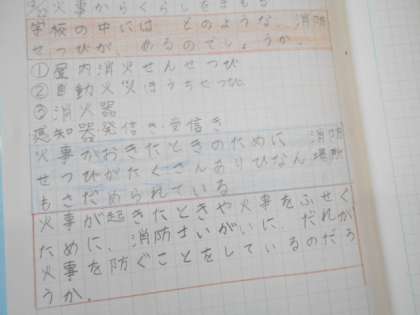 火事からくらしをまもる
学校の中には どのような、消防
せつびが、あるのでしょうか。
①屋内消火せんせつび
②自動火災ほうちせつび
③消火器
感知器発信き・受信き
火事がおきたときのために 消防
せつびがたくさんありひなん場所
もさだめられている
火事が起きたときや火事をふせぐ
ために、消防しいがいに、だれが
火事を防ぐことをしているのだろ
うか。